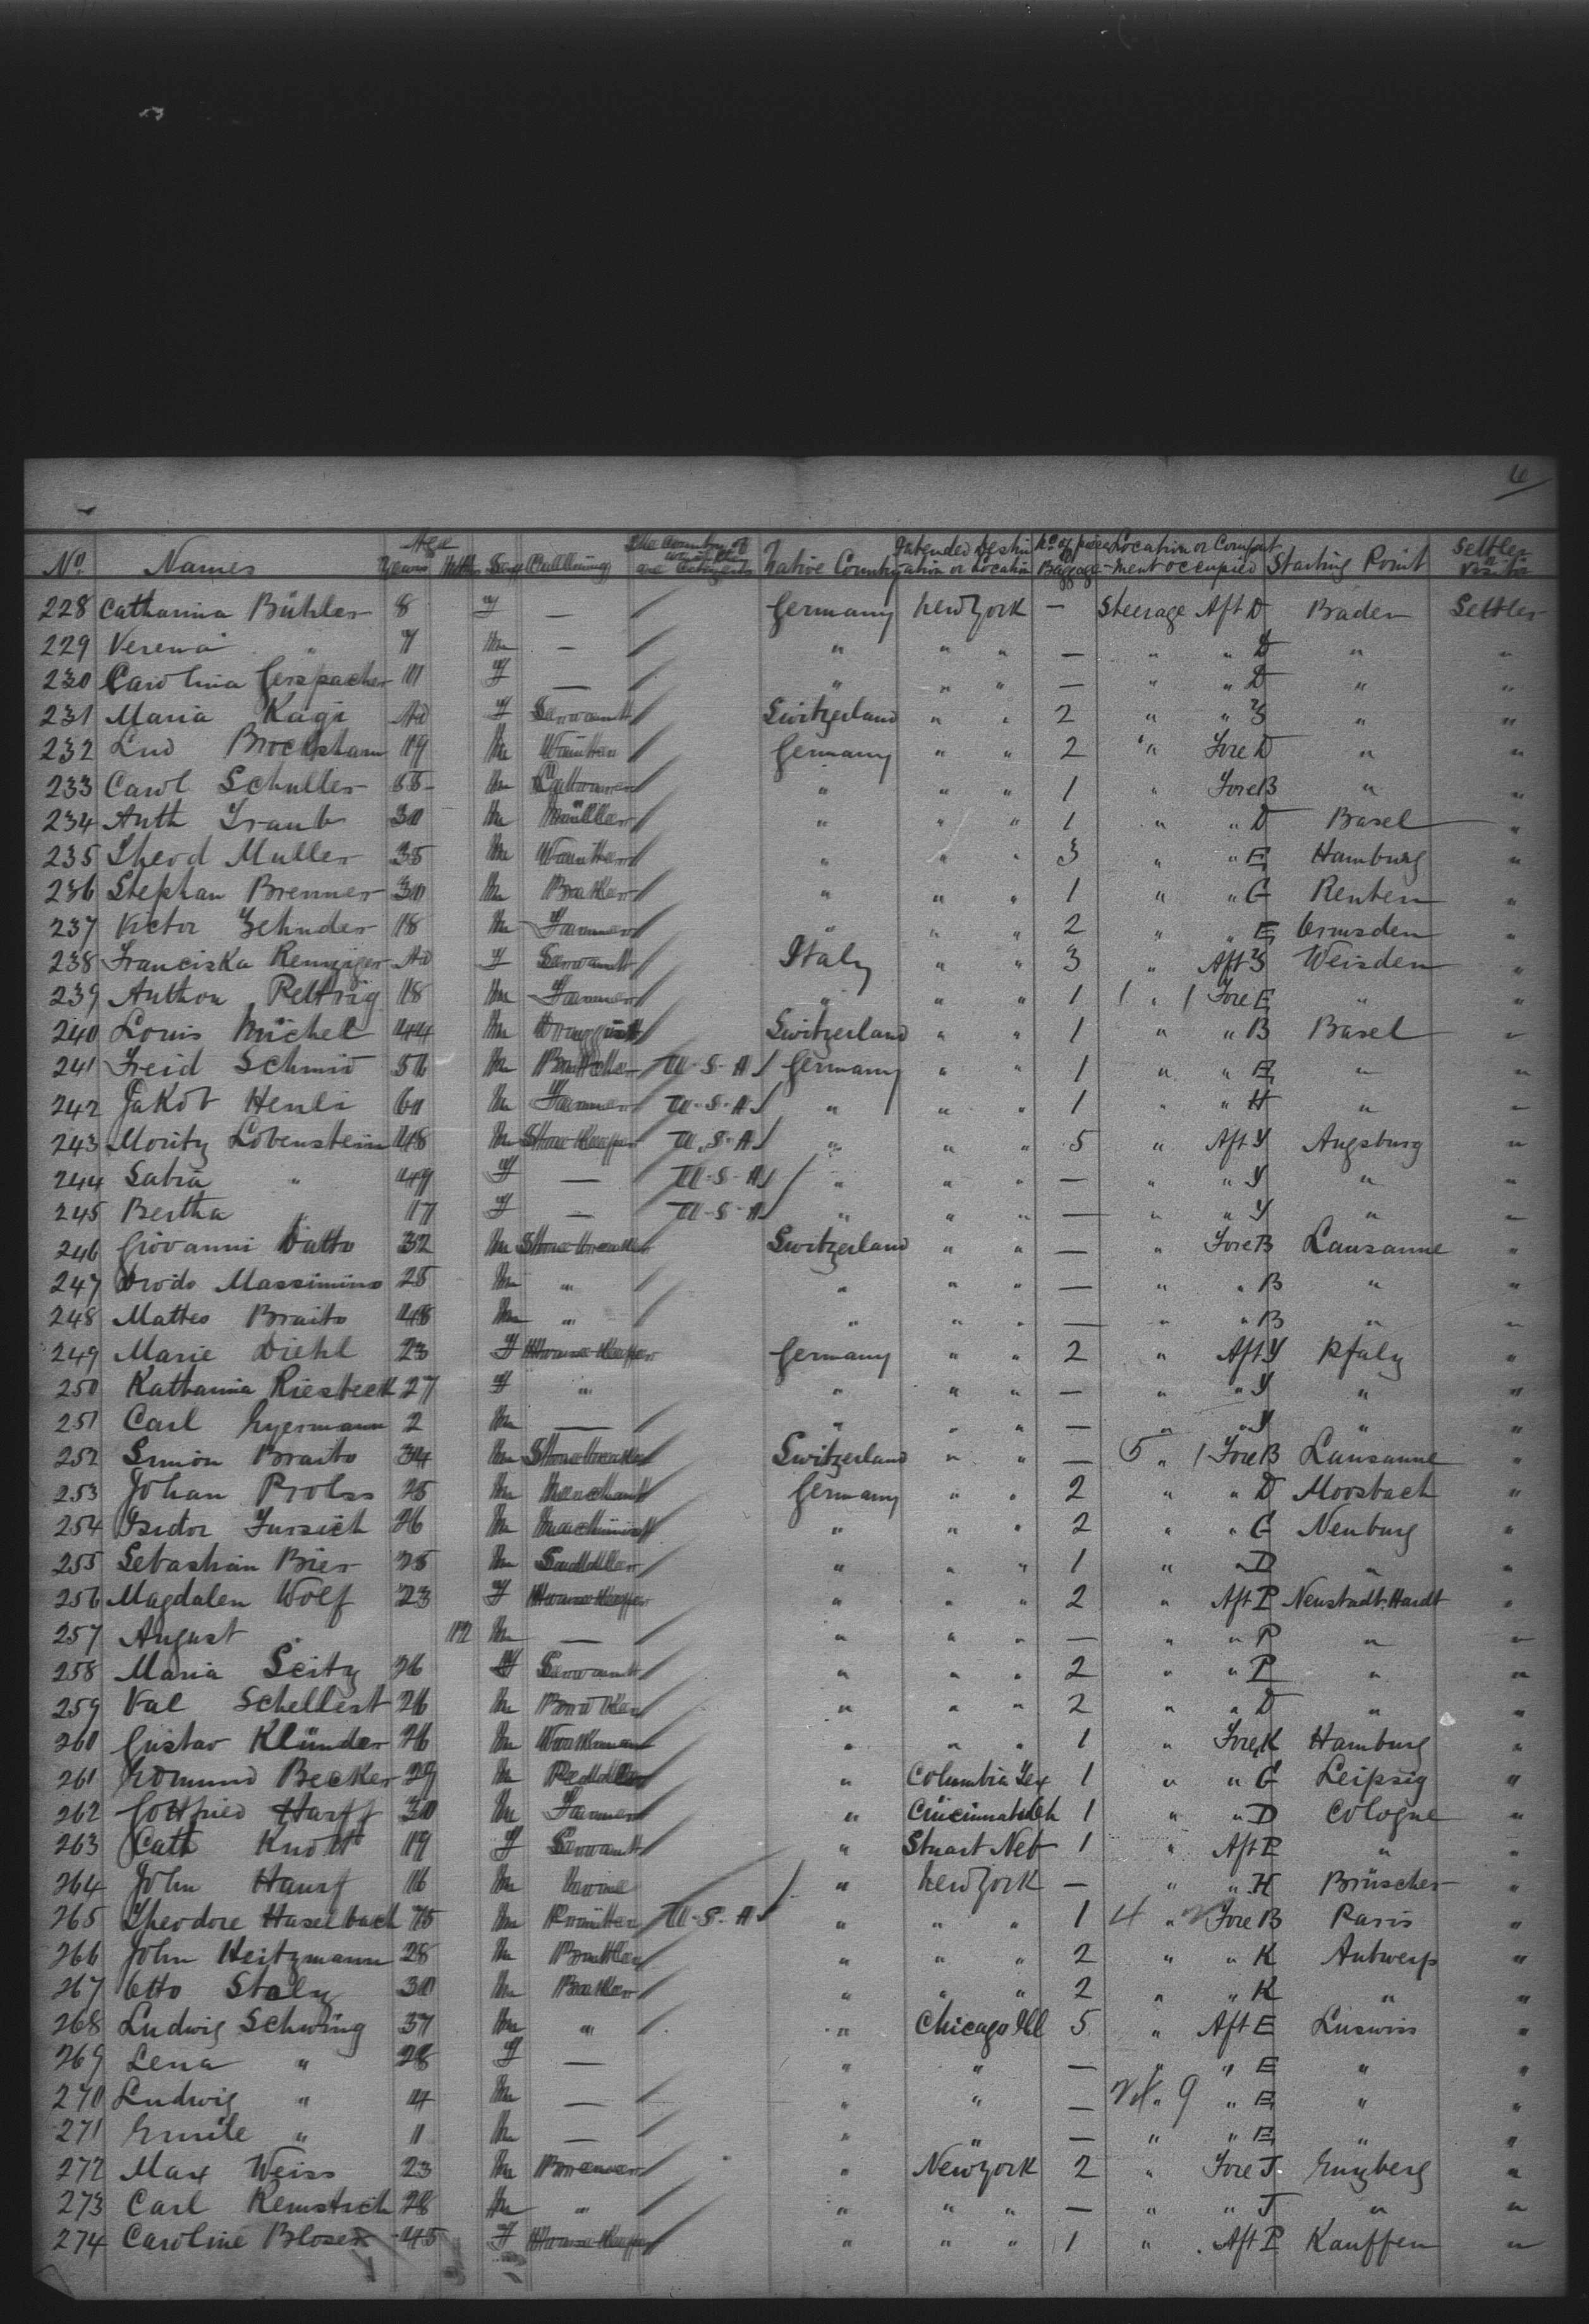 6
No. Names Age Years Mths Sex Calling The Country of which they are Citizens Native Country Intended Destination or Location No of pieces Baggage Location or Compartment occupied Starting Point Settler or Visitor
228 Catharina Bühler 8 F — Germany New York — Steerage Aft D Baden Settler
229 Verena " 7 M — " " " — " " D " "
230 Carolina Gerspacher 11 F — " " " — " " D " "
231 Maria Kägi F Servant Switzerland " " 2 " " Y " "
232 Lud Brocksham 19 M Waiter Germany " " 2 " Fore D " "
233 Carol Schuller 55 M " " " 1 " Fore B " "
234 Anth Traub 30 M Müller " " " 1 " " D Basel "
235 Theod Muller 35 M " " " 3 " " E Hamburg "
236 Stephan Brenner 30 M Baker " " " 1 " " G Renten "
237 Victor Zehnder 18 M Farmer " " " 2 " " E "
238 Franciska F Servant Italy " " 3 " Aft Y Weisden "
239 Anthon Peltrig 18 M Farmer " " " 1 " Fore E " "
240 Louis Michel 44 M Druggist Switzerland " " 1 " " B Basel "
241 Freid Schmid 56 M Butcher U.S.A Germany " " 1 " " E " "
242 Jakob Henli 60 M Farmer U.S.A " " " 1 " " H " "
243 Moritz Lobenstein 48 M Store Keeper U.S.A " " " 5 " Aft Y Augsburg "
244 Sabra " 49 F — U.S.A " " " — " " Y " "
245 Bertha " 17 F — U.S.A " " " — " " Y " "
246 Giovanni Datto 32 M Stonebreaker Switzerland " " — " Fore B Lausanne "
247 Massimino 28 M " " " " — " " B " "
248 Matteo Braito 48 M " " " " — " " B " "
249 Marie Diehl 23 F House Keeper Germany " " 2 " Aft Y Pfalz "
250 Katharina Riesbeck 27 F " " " " — " " Y " "
251 Carl Eyermann 2 M — " " " — " " Y " "
252 Simon Braito 34 M Stonebreaker Switzerland " " — 5 " 1 Fore B Lausanne "
253 Johan Prolss 25 M Merchant Germany " " 2 " " D Moosbach "
254 Isidor Jursich 26 M Machinist " " " 2 " " G Neuburg "
255 Sebastian Bier 25 M Saddler " " " 1 " " D " "
256 Magdalen Wolf 23 F House Keeper " " " 2 " Aft P Neustadt. Hardt "
257 August M — " " " — " " P " "
258 Maria Seitz 26 F Servant " " " 2 " " P " "
259 Val Schellest 26 M " " " 2 " " D " "
260 Gustav Klünder 26 M Workman " " " 1 " Fore K Hamburg "
261 Edmund Becker 29 M Peddler " Columbia Tex 1 " " G Leipzig "
262 Gottfried Harff 30 M Farmer " Cincinnati Oh 1 " " D Cologne "
263 Cath Knott 19 F Servant " Stuart Neb 1 " Aft P " "
264 John Hauff 16 M None " New York — " " H Brüscher "
265 Theodore Haselbach 75 M Printer U.S.A " " " 1 4 " Fore B Paris "
266 John Heitzmann 28 M " " " 2 " " K Antwerp "
267 Otto Stalz 30 M Baker " " " 2 " " K " "
268 Ludwig Schwing 37 M " " Chicago Ill 5 " Aft E "
269 Lena " 28 F — " " — " " E " "
270 Ludwig " 4 M — " " — " 9 " E " "
271 Emile " M — " " — " " E " "
272 Max Weiss 23 M Brewer " New York 2 " Fore J Enzberg "
273 Carl 28 M " " " " — " " J " "
274 Caroline Bloser 45 F House Keeper " " " 1 " Aft P Kauffen "